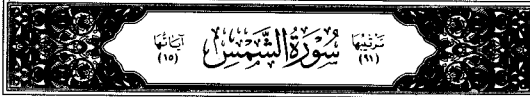 ترتيبها
(٩١)
سُورَةُ الشَّمْسِ
آياتُها
(١٥)